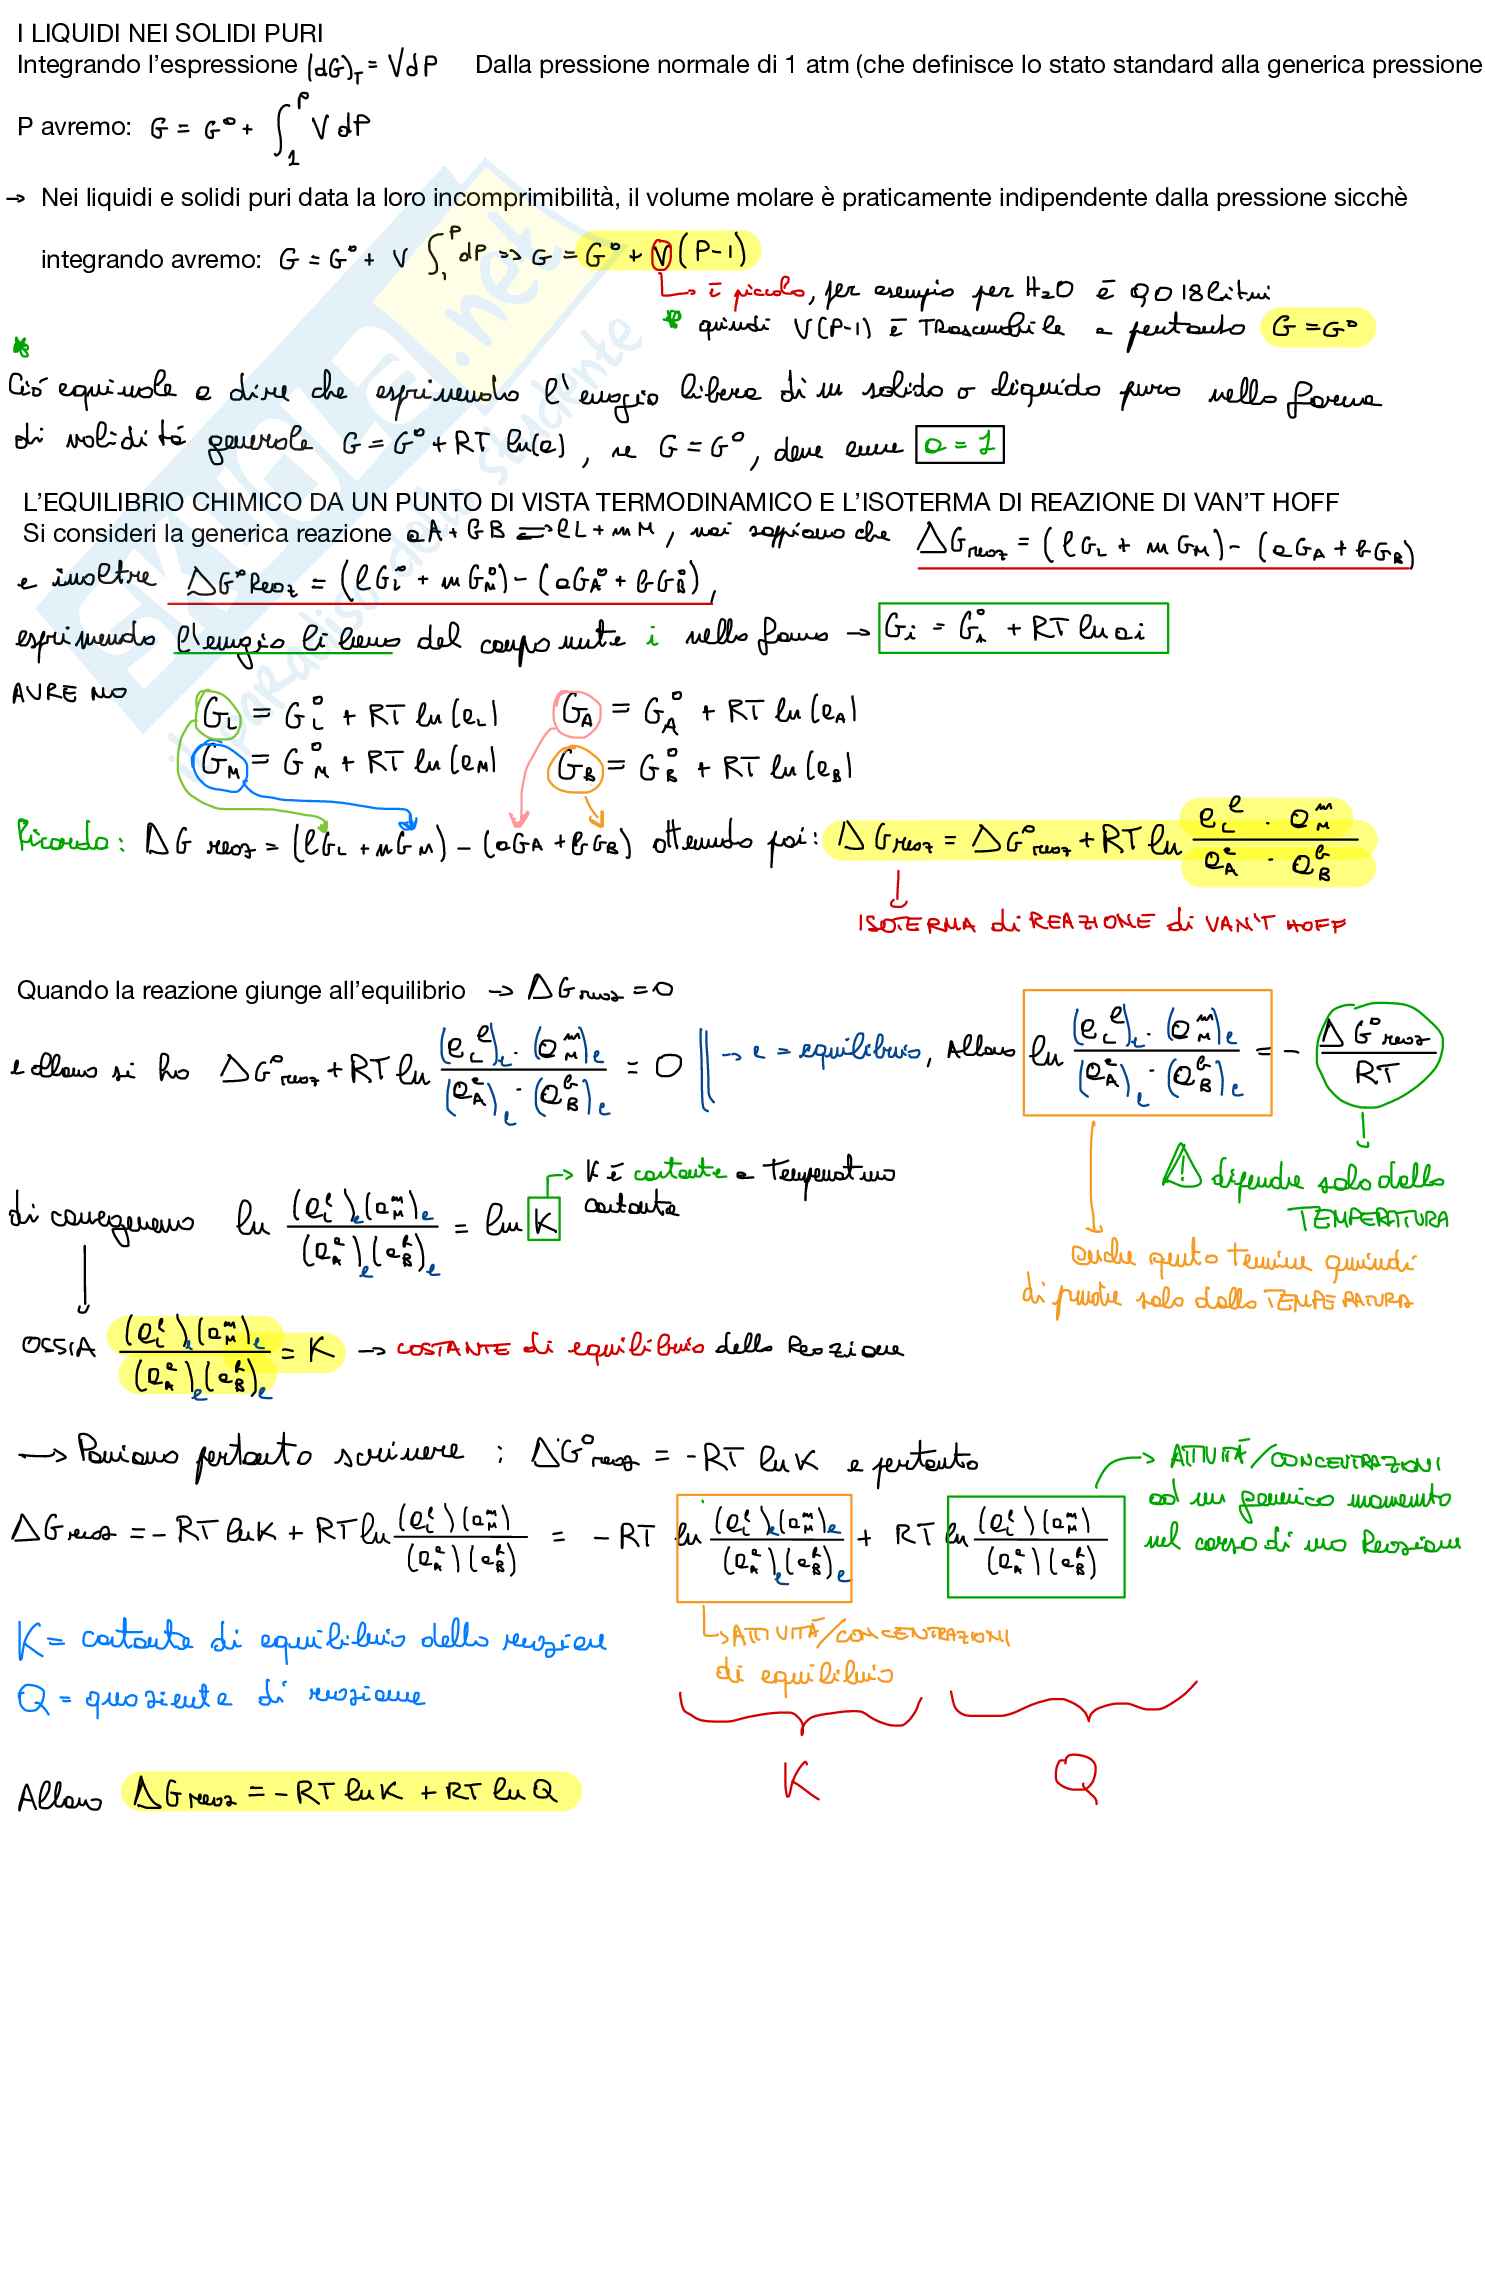 I LIQUIDI NEI SOLIDI PURI
Integrando l'espressione (dG)_T = VdP Dalla pressione normale di 1 atm (che definisce lo stato standard alla generica pressione
P avremo: G = G° + ∫₁ᴾ V dP
→ Nei liquidi e solidi puri data la loro incomprimibilità, il volume molare è praticamente indipendente dalla pressione sicchè
integrando avremo: G = G° + V ∫₁ᴾ dP => G = G° + V(P-1)
→ è piccolo, per esempio per H₂O è 0,018 litri
* quindi V(P-1) è TRascurabile e pertanto G = G°
*
Ció equivale a dire che esprimendo l'energia libera di un solido o liquido puro nella forma
di validitá generale G = G° + RT ln(a), se G = G°, deve essere a = 1
L'EQUILIBRIO CHIMICO DA UN PUNTO DI VISTA TERMODINAMICO E L'ISOTERMA DI REAZIONE DI VAN'T HOFF
Si consideri la generica reazione aA + bB ⇌ lL + mM, noi sappiamo che ΔGreaz = (lG_L + mG_M) - (aG_A + bG_B)
e inoltre ΔG°Reaz = (lG°_L + mG°_M) - (aG°_A + bG°_B),
esprimendo l'energia libera del componente i nella forma → Gi = G°i + RT ln ai
AVREMO
G_L = G°_L + RT ln(a_L) G_A = G°_A + RT ln(a_A)
G_M = G°_M + RT ln(a_M) G_B = G°_B + RT ln(a_B)
Ricorda: ΔG reaz = (lG_L + mG_M) - (aG_A + bG_B) ottenendo poi: ΔGreaz = ΔG°reaz + RT ln (a_L^l · a_M^m) / (a_A^a · a_B^b)
ISOTERMA di REAZIONE di VAN'T HOFF
Quando la reazione giunge all'equilibrio → ΔGreaz = 0
e allora si ha ΔG°reaz + RT ln (a_L^l)e · (a_M^m)e / (a_A^a)e · (a_B^b)e = 0 → e = equilibrio, Allora ln (a_L^l)e · (a_M^m)e / (a_A^a)e · (a_B^b)e = - ΔG°reaz / RT
⚠ dipende solo dalla
TEMPERATURA
anche questo termine quindi
dipende solo dalla TEMPERATURA
K è costante a Temperatura
costante
di conseguenza ln (a_L^l)e (a_M^m)e / (a_A^a)e (a_B^b)e = ln K
OSSIA (a_L^l)e (a_M^m)e / (a_A^a)e (a_B^b)e = K → COSTANTE di equilibrio della Reazione
→ Possiamo pertanto scrivere : ΔG°reaz = -RT ln K e pertanto
ΔGreaz = - RT ln K + RT ln (a_L^l)(a_M^m) / (a_A^a)(a_B^b) = - RT ln (a_L^l)e (a_M^m)e / (a_A^a)e (a_B^b)e + RT ln (a_L^l)(a_M^m) / (a_A^a)(a_B^b)
→ ATTIVITÁ/CONCENTRAZIONI
ad un generico momento
nel corso di una Reazione
→ ATTIVITÁ/CONCENTRAZIONI
di equilibrio
K = costante di equilibrio della reazione
Q = quoziente di reazione
K Q
Allora ΔGreaz = - RT ln K + RT ln Q
SKUOLA.net
il paradiso dello studente